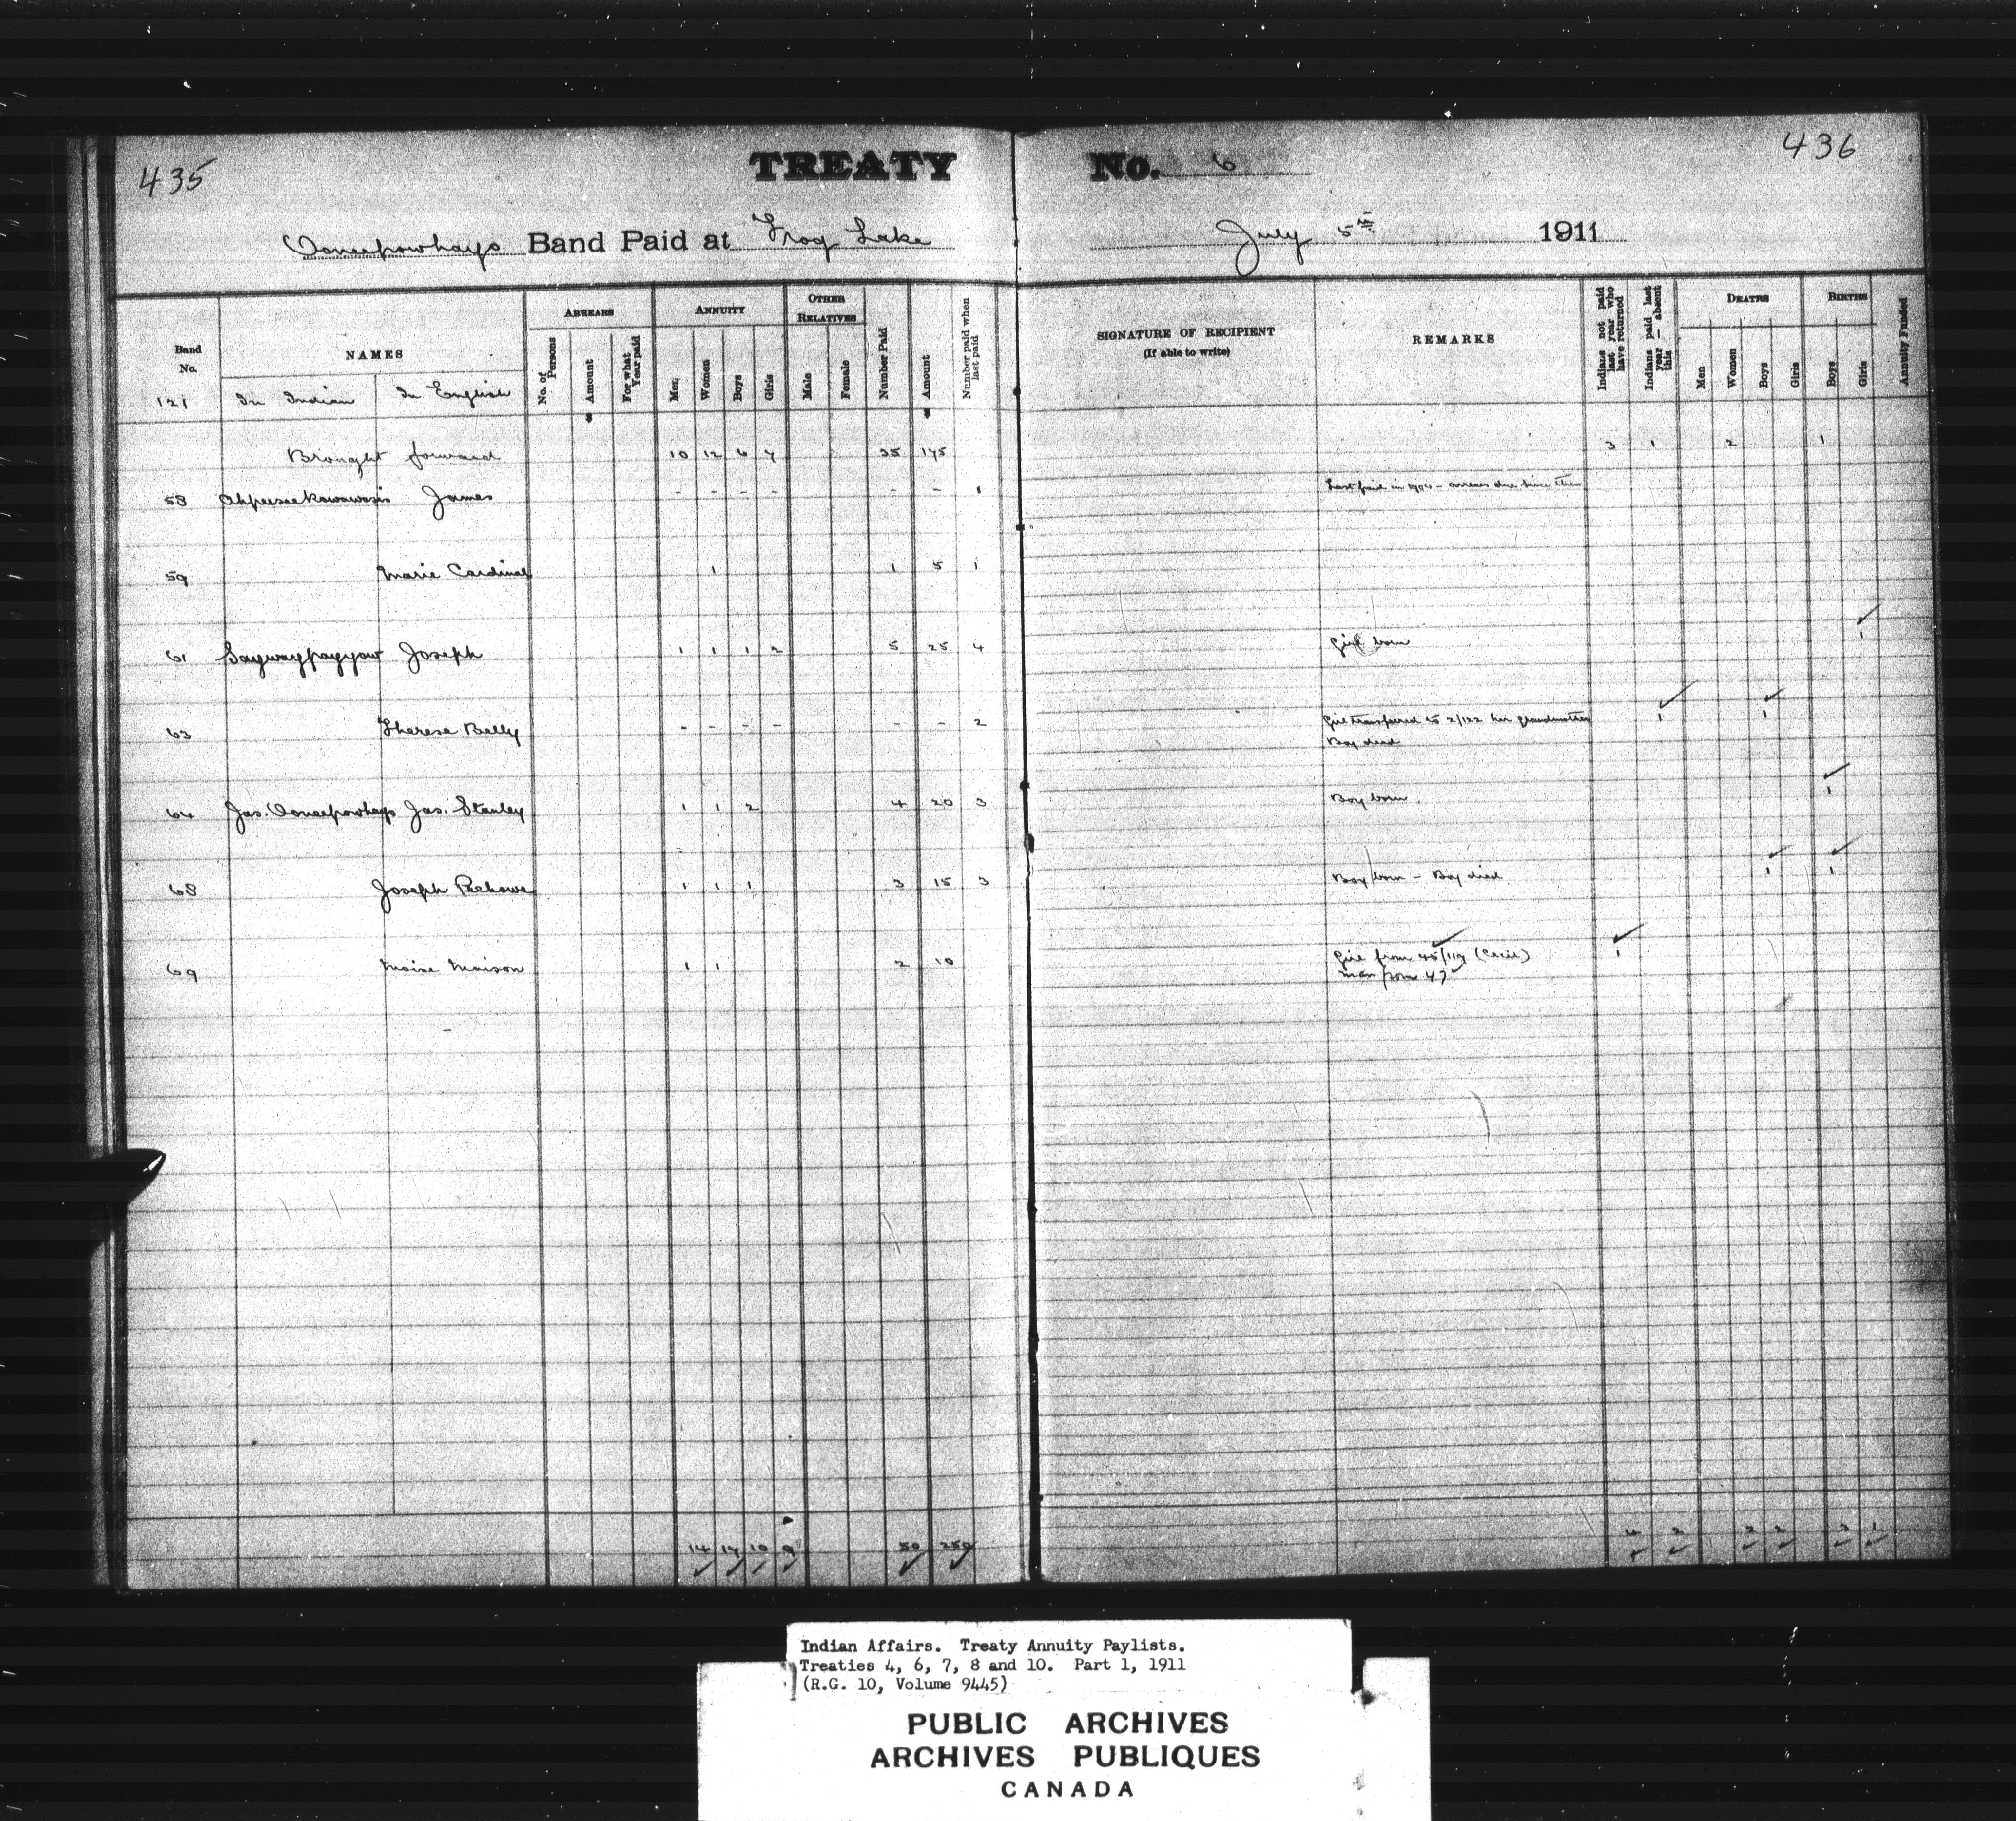 435
TREATY No. 6
436
Oonechowhays Band Paid at Frog Lake July 5th 1911
Band No. NAMES ARREARS ANNUITY OTHER RELATIVES Number Paid Amount Number paid when last paid
No. of Persons Amount For what Year paid Men Women Boys Girls Male Female
SIGNATURE OF RECIPIENT (If able to write) REMARKS Indians not paid last year who have returned Indians paid last year — absent this DEATHS BIRTHS Annuity Funded
Men Women Boys Girls Boys Girls
121 In Indian In English
Brought forward 10 12 6 7 35 175 3 1 2 1
58 James - - - - - - 1 Last paid in 1904 - arrears due since then
59 Marie Cardinal 1 1 5 1
61 Saywaypayyow Joseph 1 1 1 2 5 25 4 Girl born 1
63 Therese Belly - - - - - - 2 Girl transferred to 2/122 her grandmother 1 1
Boy died
64 Jas. Oonechowhays Jas. Stanley 1 1 2 4 20 3 Boy born 1
68 Joseph 1 1 1 3 15 3 Boy born - Boy died 1 1
69 Moise Maison 1 1 2 10 Girl from 45/119 (Cecil) 1
Man from 47
14 17 10 9 50 250 4 2 2 2 3 1
Indian Affairs. Treaty Annuity Paylists.
Treaties 4, 6, 7, 8 and 10. Part 1, 1911
(R.G. 10, Volume 9445)
PUBLIC ARCHIVES
ARCHIVES PUBLIQUES
CANADA